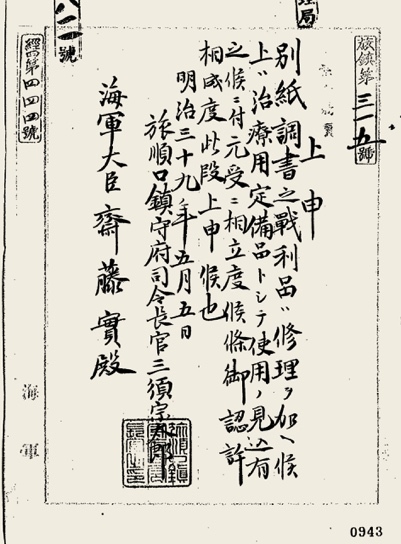 旅鎮第三一五號
上申
別紙調書之戰利品ハ修理ヲ加ヘ候
上ハ治療用定備品トシテ使用ノ見込有
之候ニ付元受ニ相立度候條御認許
相成度此段上申候也
明治三十九年五月五日
旅順口鎮守府司令長官三須宗太郎
海軍大臣齋藤實殿
八二號
經第四四四號
海軍
0943